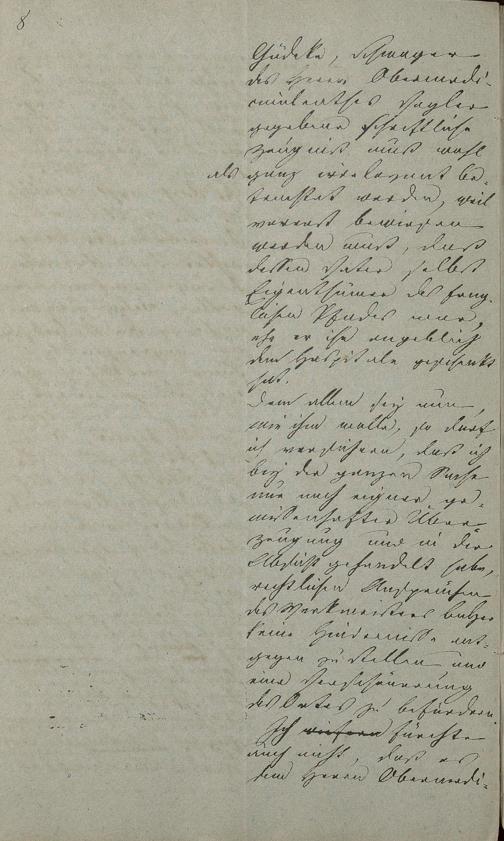 8
Gödeke, Schwager
des Herrn Obermedi-
cinalrathes Vogler
gegebene schriftliche
Zeugniß muß wohl
als ganz irrelevant be-
trachtet werden, weil
vorerst bewiesen
werden muß, daß
dessen Vater selbst
Eigenthümer des frag-
lichen Pfades war,
ehe er ihn angeblich
dem Hospitale geschenkt
hat.
Dem allem sey nun,
wie ihm wolle, so darf
ich versichern, daß ich
bey der ganzen Sache
nur nach eigner ge-
wissenhafter Über-
zeugung und in der
Absicht gehandelt habe,
rechtlichen Ansprüchen
des Werkmeisters
keine Hindernisse ent-
gegen zu stellen und
eine Verschönerung
des Ortes zu befördern.
Ich fürchte
auch nicht, daß es
dem Herrn Obermedi-